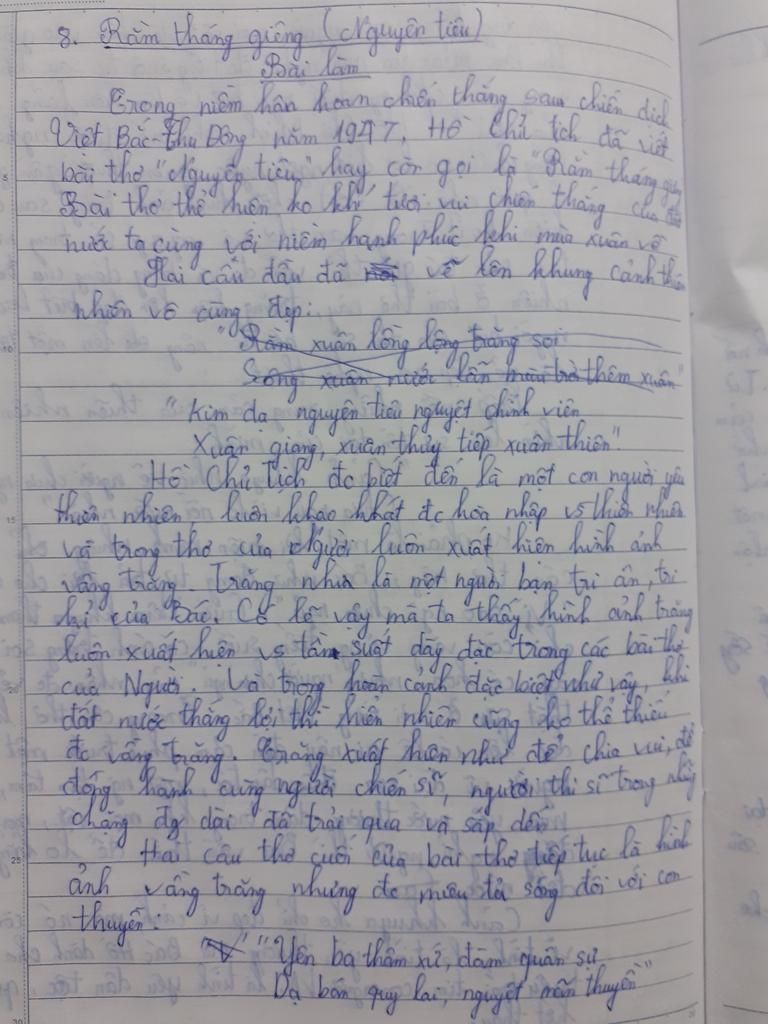 8. Rằm tháng giêng (Nguyên tiêu)
Bài làm
Trong niềm hân hoan chiến thắng sau chiến dịch
Việt Bắc-Thu Đông năm 1947, Hồ Chủ tịch đã viết
bài thơ "Nguyên tiêu" hay còn gọi là "Rằm tháng giêng
Bài thơ thể hiện ko khí tươi vui chiến thắng của
nước ta cùng với niềm hạnh phúc khi mùa xuân về
Hai câu đầu đã vẽ lên khung cảnh thiên
nhiên vô cùng đẹp:
"Rằm xuân lồng lộng trăng soi
Sông xuân nước lẫn màu trời thêm xuân"
"Kim dạ nguyên tiêu nguyệt chính viên
Xuân giang, xuân thủy tiếp xuân thiên".
Hồ Chủ Tịch đc biết đến là một con người yêu
thiên nhiên, luôn khao khát đc hòa nhập vs thiên nhiên
và trong thơ của Người luôn xuất hiện hình ảnh
vầng trăng. Trăng như là một người bạn tri ân, tri
kỉ của Bác. Có lẽ vậy mà ta thấy hình ảnh trăng
luôn xuất hiện vs tần suất dày đặc trong các bài thơ
của Người. Và trong hoàn cảnh đặc biệt như vậy, khi
đất nước thắng lợi thì hiển nhiêm cũng ko thể thiếu
đc vầng trăng. Trăng xuất hiện như để chia vui, để
đồng hành cùng người chiến sĩ, người thi sĩ trong những
chặng đg dài đã trải qua và sắp đến
Hai câu thơ cuối của bài thơ tiếp tục là hình
ảnh vầng trăng nhưng đc miêu tả sóng đôi với con
thuyền.
"Yên ba thâm xứ, đàm quân sự
Dạ bán quy lai, nguyệt mãn thuyền"